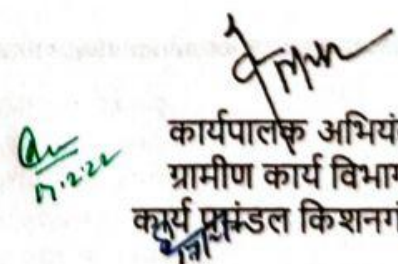 17.2.22
कार्यपालक अभियं
ग्रामीण कार्य विभाग
कार्य प्रमंडल किशनगं